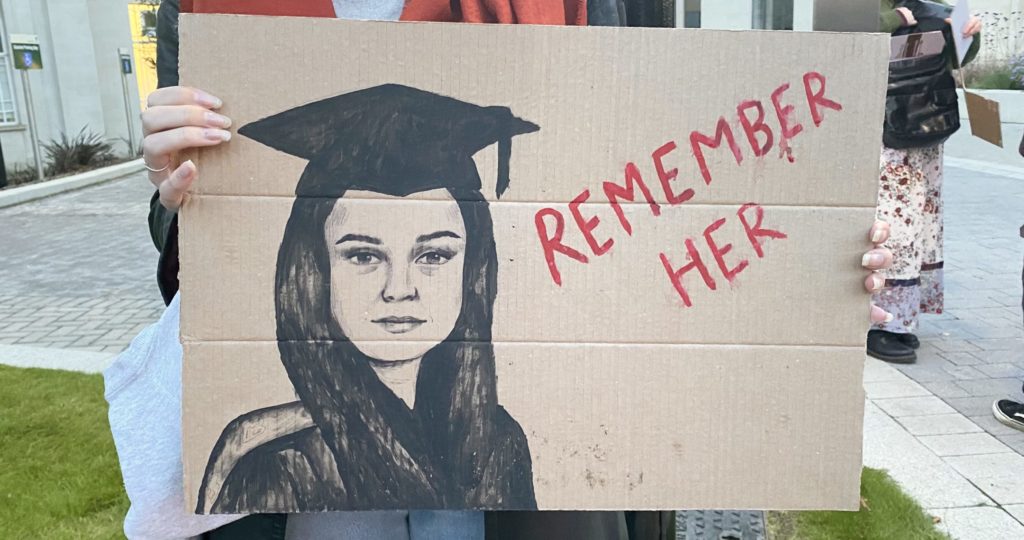 REMEMBER
HER